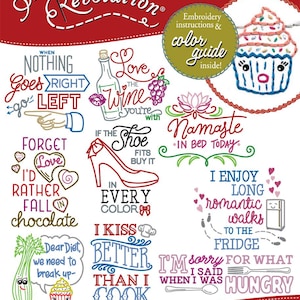 Revolution®
Embroidery
instructions &
color
guide
inside!
WHEN
NOTHING
Goes RIGHT
go LEFT
Love
the
Wine
you're
with
Namaste
IN BED TODAY
FORGET
Love
I'D
RATHER
FALL
IN
chocolate
IF THE Shoe
FITS
BUY IT
IN
EVERY
COLOR
I ENJOY
LONG
romantic
walks
TO THE
FRIDGE
Dear Diet,
we need to
break up-
I KISS
BETTER
THAN I
COOK
I'M sorry FOR WHAT
I SAID
WHEN I WAS HUNGRY